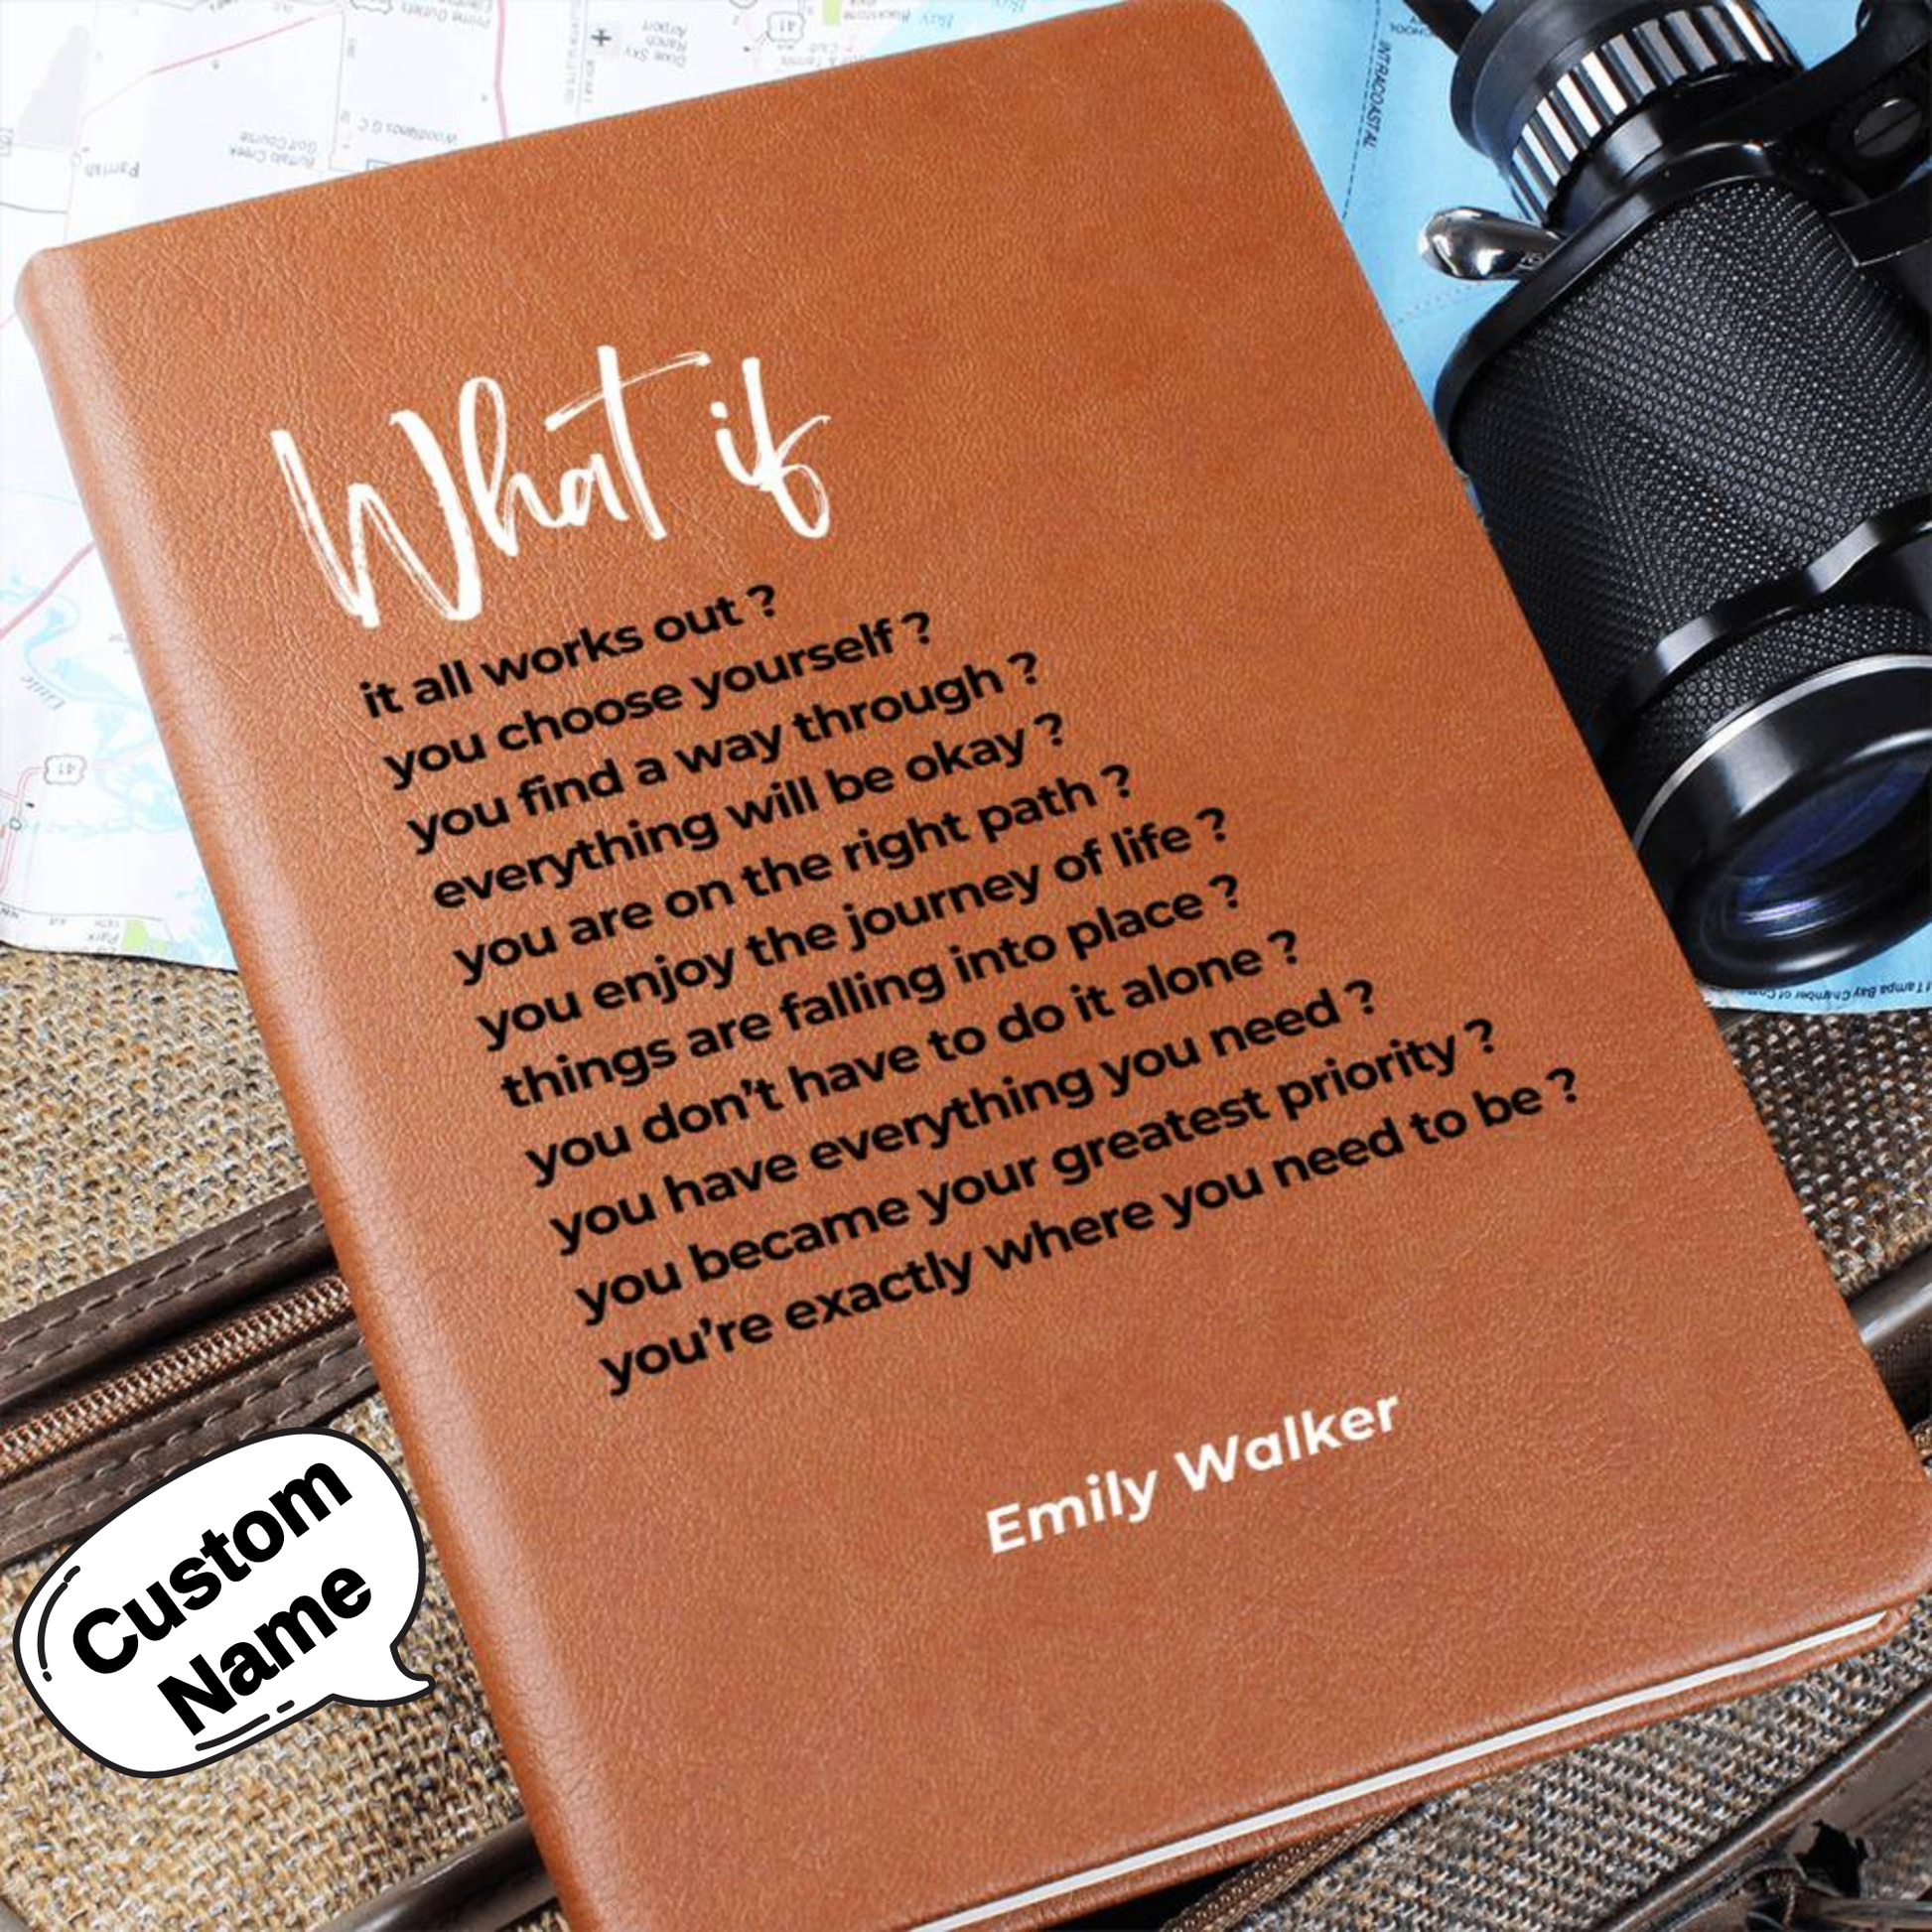 What if
it all works out ?
you choose yourself ?
you find a way through ?
everything will be okay ?
you are on the right path ?
you enjoy the journey of life ?
things are falling into place ?
you don't have to do it alone ?
you have everything you need ?
you became your greatest priority ?
you're exactly where you need to be ?
Emily Walker
Custom
Name
INTRACOASTAL
Parrish
Buffalo Creek
Golf Course
Woodlands G C
Airport
41
41
Little
Park